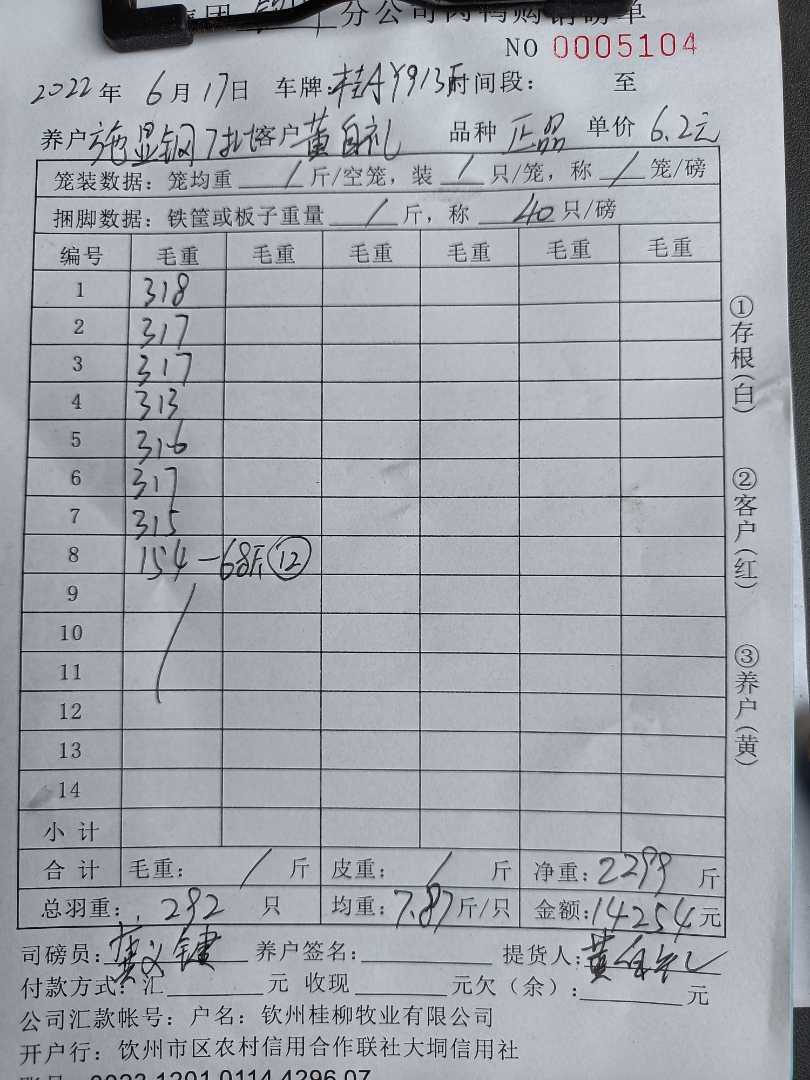 集团 分公司肉鸭购销磅单
NO 0005104
2022年 6月17日 车牌:桂AY913 时间段: 至
养户 施显钢 客户 黄自礼 品种 正品 单价 6.2元
笼装数据: 笼均重 / 斤/空笼, 装 / 只/笼, 称 / 笼/磅
捆脚数据: 铁筐或板子重量 / 斤, 称 40 只/磅
编号 毛重 毛重 毛重 毛重 毛重 毛重
1 318
2 317
3 317
4 313
5 316
6 317
7 315
8 154-68斤 12
9
10
11
12
13
14
小计
合计 毛重: / 斤 皮重: / 斤 净重: 2299 斤
总羽重: 292 只 均重: 7.87 斤/只 金额: 14254元
司磅员: 养户签名: 提货人: 黄自礼
付款方式: 汇 元 收现 元欠(余): 元
公司汇款帐号: 户名: 钦州桂柳牧业有限公司
开户行: 钦州市区农村信用合作联社大垌信用社
①存根(白)
②客户(红)
③养户(黄)